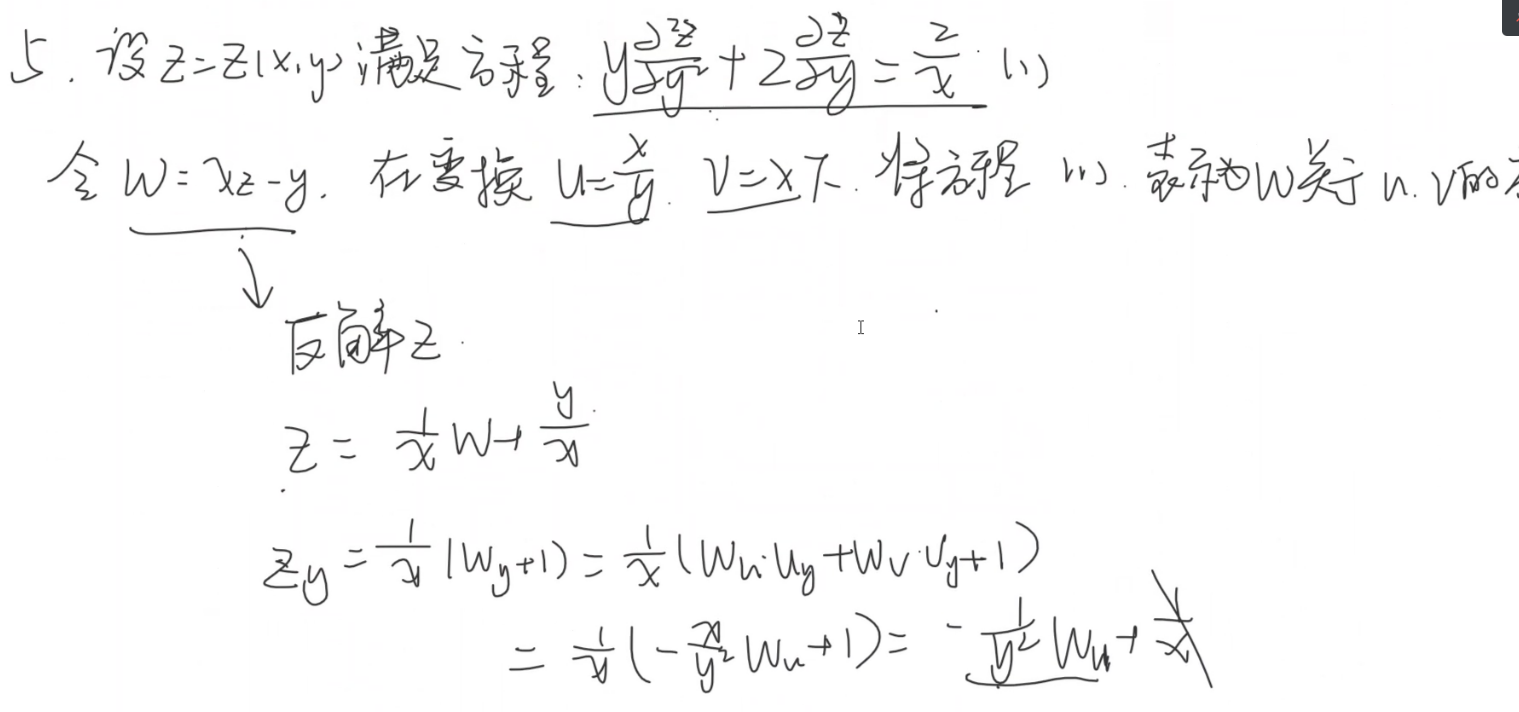 5. 设 z=z(x,y) 满足方程: y∂²z/∂y² + 2∂z/∂y = 2/x (1)
令 W=xz-y. 在变换 u=x/y. v=x下. 将方程 (1). 表示为W关于 u.v的
反解z.
z = 1/x W + y/x
z_y = 1/x (W_y+1) = 1/x (W_u·u_y+W_v·v_y+1)
= 1/x (-x/y² W_u+1) = -1/y² W_u + 1/x